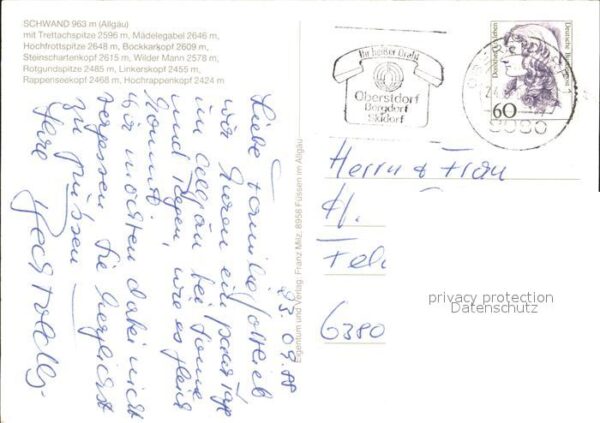 SCHWAND 963 m (Allgäu)
mit Trettachspitze 2596 m, Mädelegabel 2646 m,
Hochfrottspitze 2648 m, Bockkarkopf 2609 m,
Steinschartenkopf 2615 m, Wilder Mann 2578 m,
Rotgundspitze 2485 m, Linkerskopf 2455 m,
Rappenseekopf 2468 m, Hochrappenkopf 2424 m
23 09.88
Liebe Familie
wir ein paar Tage
im Allgäu bei Sonne
und Regen, wie es gleich
kommt.
wir möchten dabei nicht
vergessen Sie herzlichst
zu grüssen
Ihre
Eigentum und Verlag: Franz Milz, 8958 Füssen im Allgäu
Ihr heißer Draht
Oberstdorf
Bergdorf
Skidorf
8980
60
Deutsche Bundespost
Herrn & Frau
H.
Fel
6380
privacy protection
Datenschutz